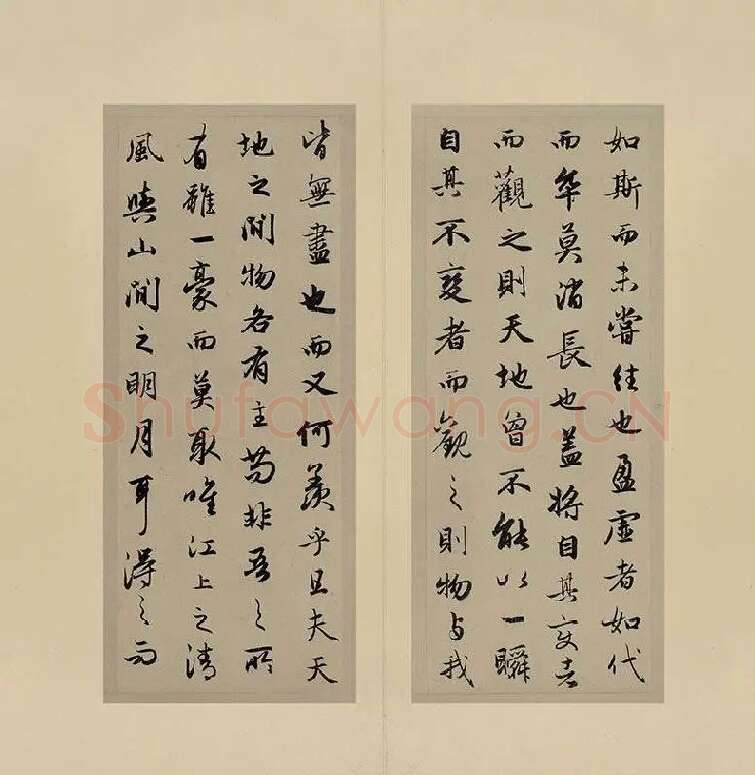 如斯而未嘗往也盈虛者如代
而卒莫消長也盖將自其变者
而觀之則天地曾不能以一瞬
自其不變者而觀之則物与我
皆無盡也而又何羨乎且夫天
地之間物各有主苟非吾之所
有雖一豪而莫取唯江上之清
風與山間之明月耳得之而
Shufawang.CN